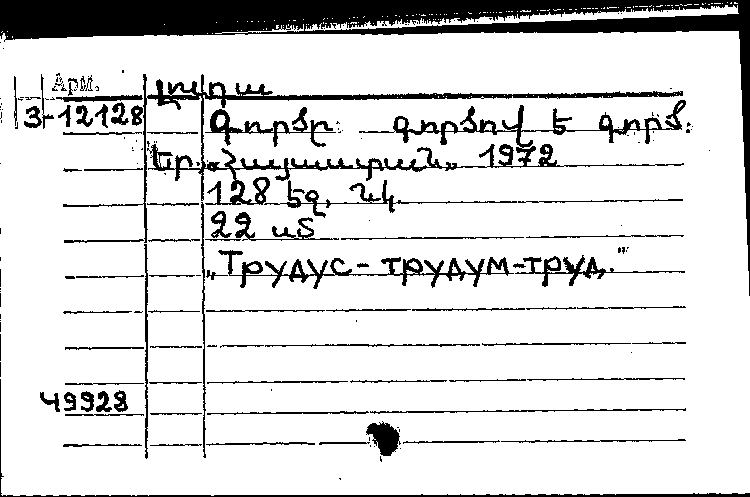 Арм.
Լյուդա
3-12128
Գործը գործով է գործ:
Եր., «Հայաստան» 1972
128 էջ, նկ.
22 սմ
„Трудус - трудум - труд."
49928